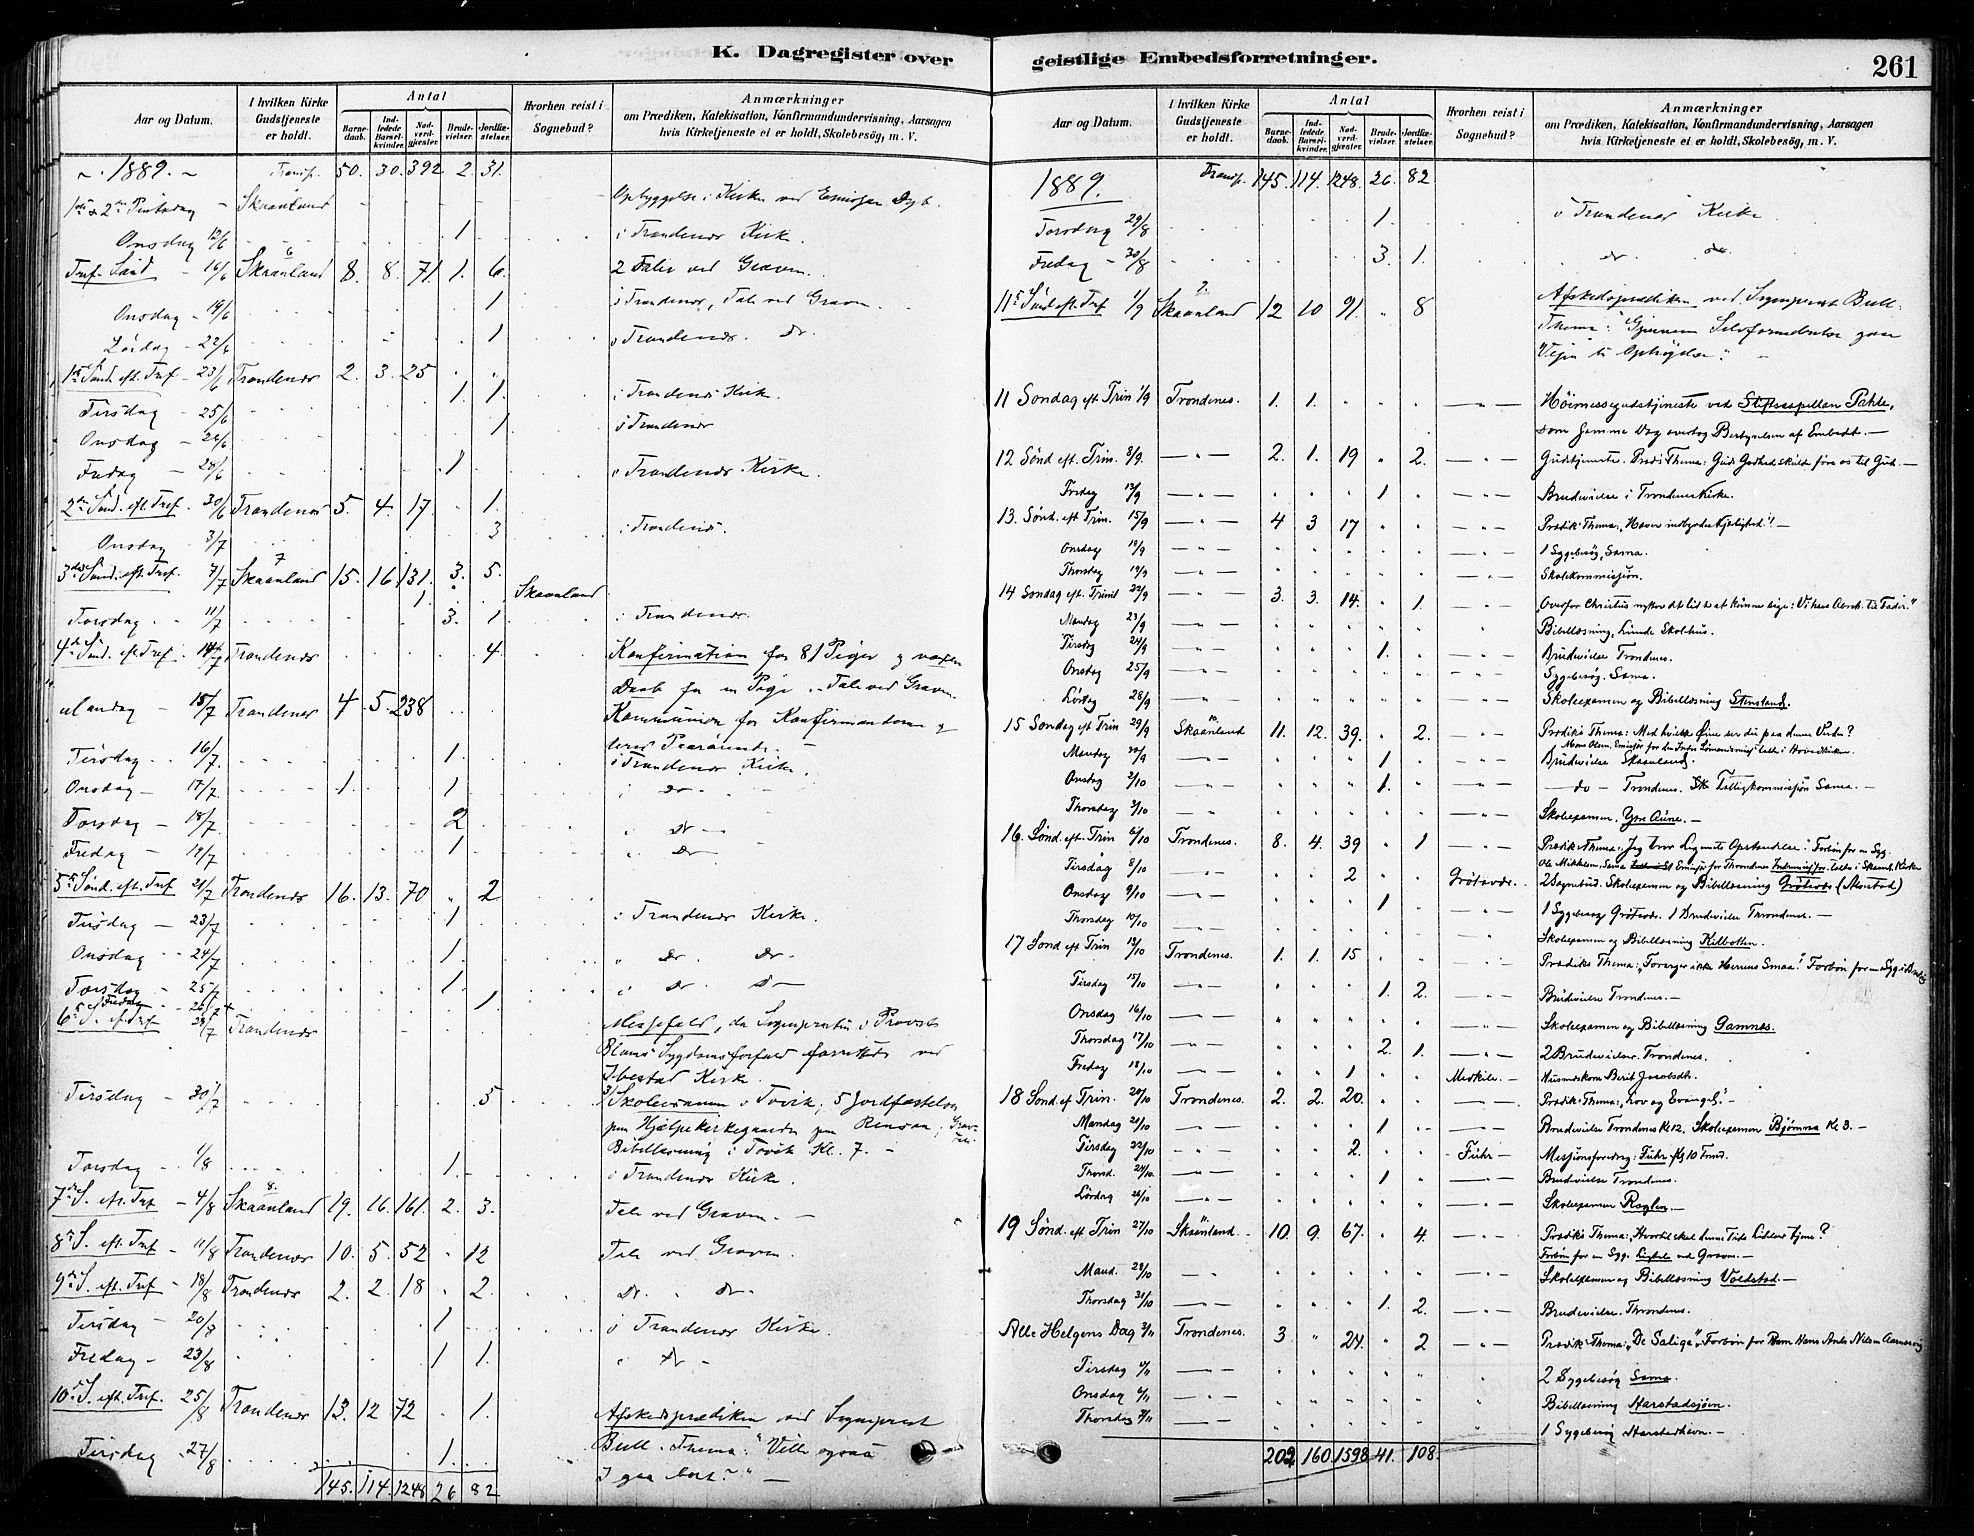 K. Dagregister over
Aar og Datum.
I hvilken Kirke Gudstjeneste er holdt.
Antal
Barne-daab.
Ind-ledede Barsel-kvinder.
Nad-verd-gjæster.
Brude-vielser.
Jordfæ-stelser.
Hvorhen reist i Sognebud?
Anmærkninger
om Prædiken, Katekisation, Konfirmandundervisning, Aarsagen
hvis Kirketjeneste ei er holdt, Skolebesög, m. V.
1889. Transp. 50. 30. 392 2. 31.
1ste & 2den Pintsdag Skaanland Opbyggelse i Kirken ved
Onsdag 12/6 1 i Trondenes Kirke.
Tref. Sönd 16/6 Skaanland 8. 8. 71. 1. 6. 2 Taler ved Graven.
Onsdag 19/6 1 i Trondenes, Tale ved Graven
Lördag 22/6 1 i Trondenes. do.
1ste Sönd. eft. Tref. 23/6 Trondenes 2. 3. 25
Tirsdag 25/6 1. 1. i Trondenes Kirke.
Onsdag 26/6 1 i Trondenes
Fredag 28/6 1 i Trondenes Kirke.
2den Sönd. eft. Tref. 30/6 Trondenes 5. 4. 17. 1.
Onsdag 3/7 3 i Trondenes.
3die Sönd. eft. Tref. 7/7 Skaanland 15. 16. 131. 3. 5.
1. Skaanland
Torsdag 11/7 3. 1 i Trondenes.
4de Sönd. eft. Tref. 14/7 Trondenes 4. Konfirmation for 81 Piger og voxen
Daab for en Pige. Tale ved Graven.
Mandag 15/7 Trondenes 4 5. 238 Kommunion for Konfirmanderne og
deres Paarörende.
Tirsdag 16/7 1. i Trondenes Kirke.
Onsdag 17/7 1. 1 i do
Torsdag 18/7 2 do
Fredag 19/7 1 do
5te Sönd. eft. Tref 21/7 Trondenes 16. 13. 70 2
Tirsdag 23/7 1 i Trondenes Kirke.
Onsdag 24/7 1. " do do
Torsdag 25/7 1. do do
Fredag 26/7 1.
6te S. eft. Tref 28/7 Trondenes Messefald, da Sognepresten i Provst
Blaus Sygdomsforfald forrettede ved
Ibestad Kirke.
Tirsdag 30/7 5 Skoleexamen i Tovik; 5 Jordfæstelser
paa Hjælpekirkegaarden paa Rensaa; Grav-tale.
Bibellæsning i Tovik Kl. 7.
Torsdag 1/8 1. i Trondenes Kirke.
7de S. eft. Tref 4/8 Skaanland 19. 16. 161. 2. 3. Tale ved Graven.
8de S. eft. Tref 11/8 Trondenes 10. 5. 52 12 Tale ved Graven.
9de S. eft. Tref 18/8 Trondenes 2. 2. 18 2. do. do.
Tirsdag 20/8 1 i Trondenes Kirke.
Fredag 23/8 1 1. do
10de S. eft. Tref. 25/8 Trondenes 13. 12 72 1. Afskedsprædiken ved Sogneprest
Bull. Thema: "Ville ogsaa
Tirsdag 27/8 1. I gaa bort?"
145. 114. 1248 26 82
geistlige Embedsforretninger.
261
Aar og Datum.
I hvilken Kirke Gudstjeneste er holdt.
Antal
Barne-daab.
Ind-ledede Barsel-kvinder.
Nad-verd-gjester.
Brude-vielser.
Jordfæ-stelser.
Hvorhen reist i Sognebud?
Anmærkninger
om Prædiken, Katekisation, Konfirmandundervisning, Aarsagen
hvis Kirketjeneste ei er holdt, Skolebesög, m. V.
1889. Transp. 145. 114. 1248. 26. 82
Torsdag 29/8 1. i Trondenes Kirke
Fredag 30/8 3. 1. do do
11te Sönd. eft. Tref 1/9 Skaanland 12 10 91. 8 Afskedsprædiken ved Sogneprest Bull.
Thema: "Gjennem Selvfornedrelse gaar
Vejen til Ophöjelse."
11 Sondag eft Trin 1/9 Trondenes. 1. 1. Höimessegudstjeneste ved Stiftscapellan Pahle,
som samme Dag overtog Bestyrelsen af Embedet.
12 Sönd eft. Trin. 8/9. 2. 1. 19 2. Gudstjeneste. Prædi: Thema: Guds Godhed skulde före os til Gud.
Fredag 13/9 1 Brudevielse i Trondenes Kirke.
13. Sönd. eft Trin. 15/9 4 3 17 Prædik: Thema:
Onsdag 18/9 1 Sygebesög, Sama.
Thorsdag 19/9 Skolekommisjon.
14 Sondag eft. Trinit 22/9 3. 3. 14. 1.
Mandag 23/9 Bibellæsning, Skolehus.
Tirsdag 24/9 1. Brudevielse Trondenes.
Onsdag 25/9 Sygebesög. Sama.
Lördag 28/9 Skoleexamen og Bibellæsning Stensland.
15 Sondag eft Trin 29/9 Skaanland 11. 12. 39. 2. Prædiks Thema: Med hvilke Öine ser du paa denne Verden?
Mandag 1 Brudevielse Skaanland.
Onsdag 2/10 1. do Trondenes. Tillægkommisjon Sama.
Thorsdag 3/10 Skoleexamen.
16. Sönd. eft. Trin 6/10 Trondenes. 8. 4. 39 1 Prædik: Thema: Jeg tror Legemets Opstandelse. Forbön for en Syg.
Tirsdag 8/10 2 Grötavær. 2 Sognebud. Skoleexamen og Bibellæsning Grötavær
Onsdag 9/10 1 1 Sygebesög Grötavær. 1 Brudevielse Throndenes.
Thorsdag 10/10 Skoleexamen og Bibellæsning Kilbotten.
17 Sond eft Trin 13/10 Trondenes. 1. 1. 15 Prædiks Thema: "Forarger ikke Herrens Smaa". Forbön for en Syg
Tirsdag 15/10 1. 2. Brudevielse Trondenes.
Onsdag 16/10 Skoleexamen og Bibellæsning Gamnes.
Thorsdag 17/10 2. 1. 2 Brudevielser. Trondenes.
Fredag 18/10 1 Medkila. Husmandskone Berit Jacobsdtr.
18 Sond. ef. Trin. 20/10 Trondenes. 2. 2. 20. Prædik: Thema: "Lov og Evangel."
Mandag 21/10 1 Brudevielse Trondenes Kl 12. Skoleexamen Bjömnes Kl 3.
Tirsdag 22/10 2. Fuhr Missjonsforedrag: Fuhr
Thorsd. 24/10 1 Brudevielse Trondenes.
Lördag 26/10 Skoleexamen
19 Sönd. eft Trin 27/10 Skaanland. 10. 9. 67. 4. Prædiks Thema:
Forbön for en Syg. Ligtale ved Graven.
Mand. 28/10 Skoleexamen og Bibellæsning Voldstad.
Thorsdag 31/10 1. 2. Brudevielse. Throndenes.
Alle Helgens Dag 3/11 Trondenes. 3 " 24. 2 Prædik: Thema: "De Salige". Forbön for Hans
Tirsdag 2 Sygebesög Sama.
Onsdag 6/11 Bibellæsning Harstadsjöen.
Thorsdag 7/11 1 Sygebesög Harstadhavn.
202 160. 1598 41. 108.